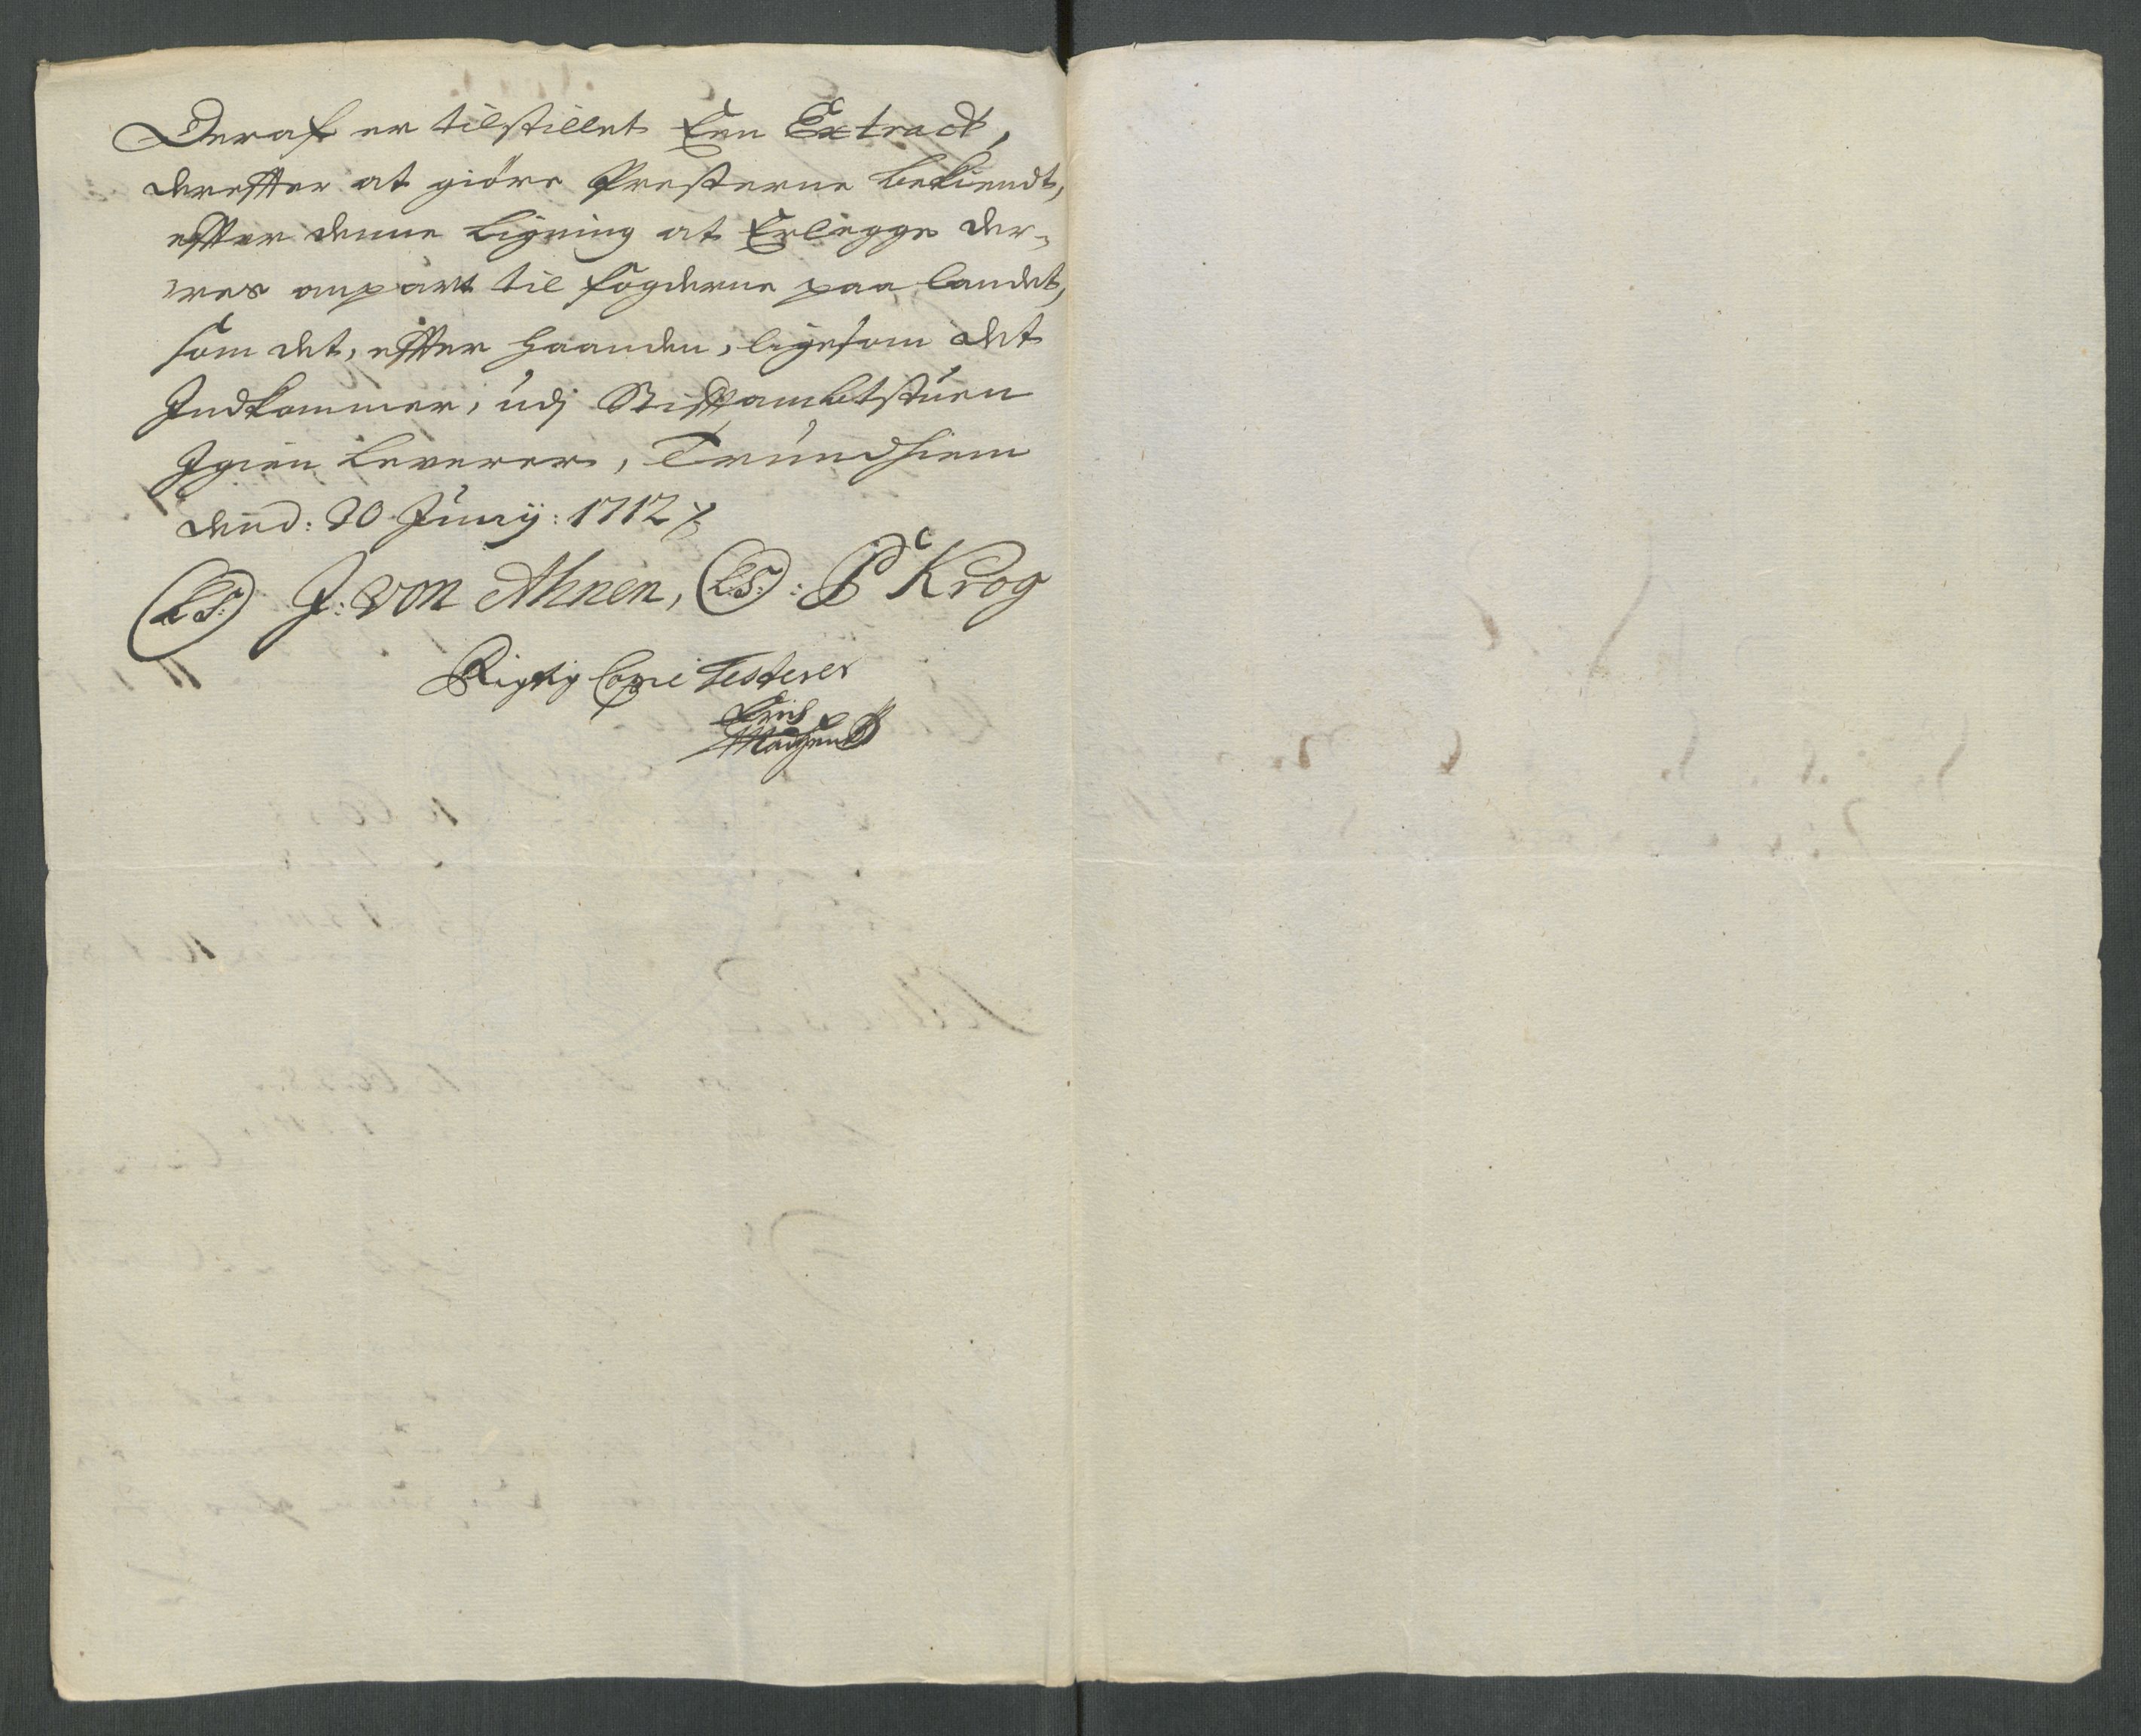 Deraf er tilstillet Een Extract,
dereffter at giöre Presterne bekiendt,
effter denne Ligning at Erlegge der-
res anpart til fogderne paa landet,
som det, effter haanden, ligesom det
Indkommer, udj Stifftambtstuen
Igien Leverer, Trundhiem
dend: 20 Junij: 1712
(LS:) J: von Ahnen, (LS:) : P Krog
Rigtig Copie Testerer